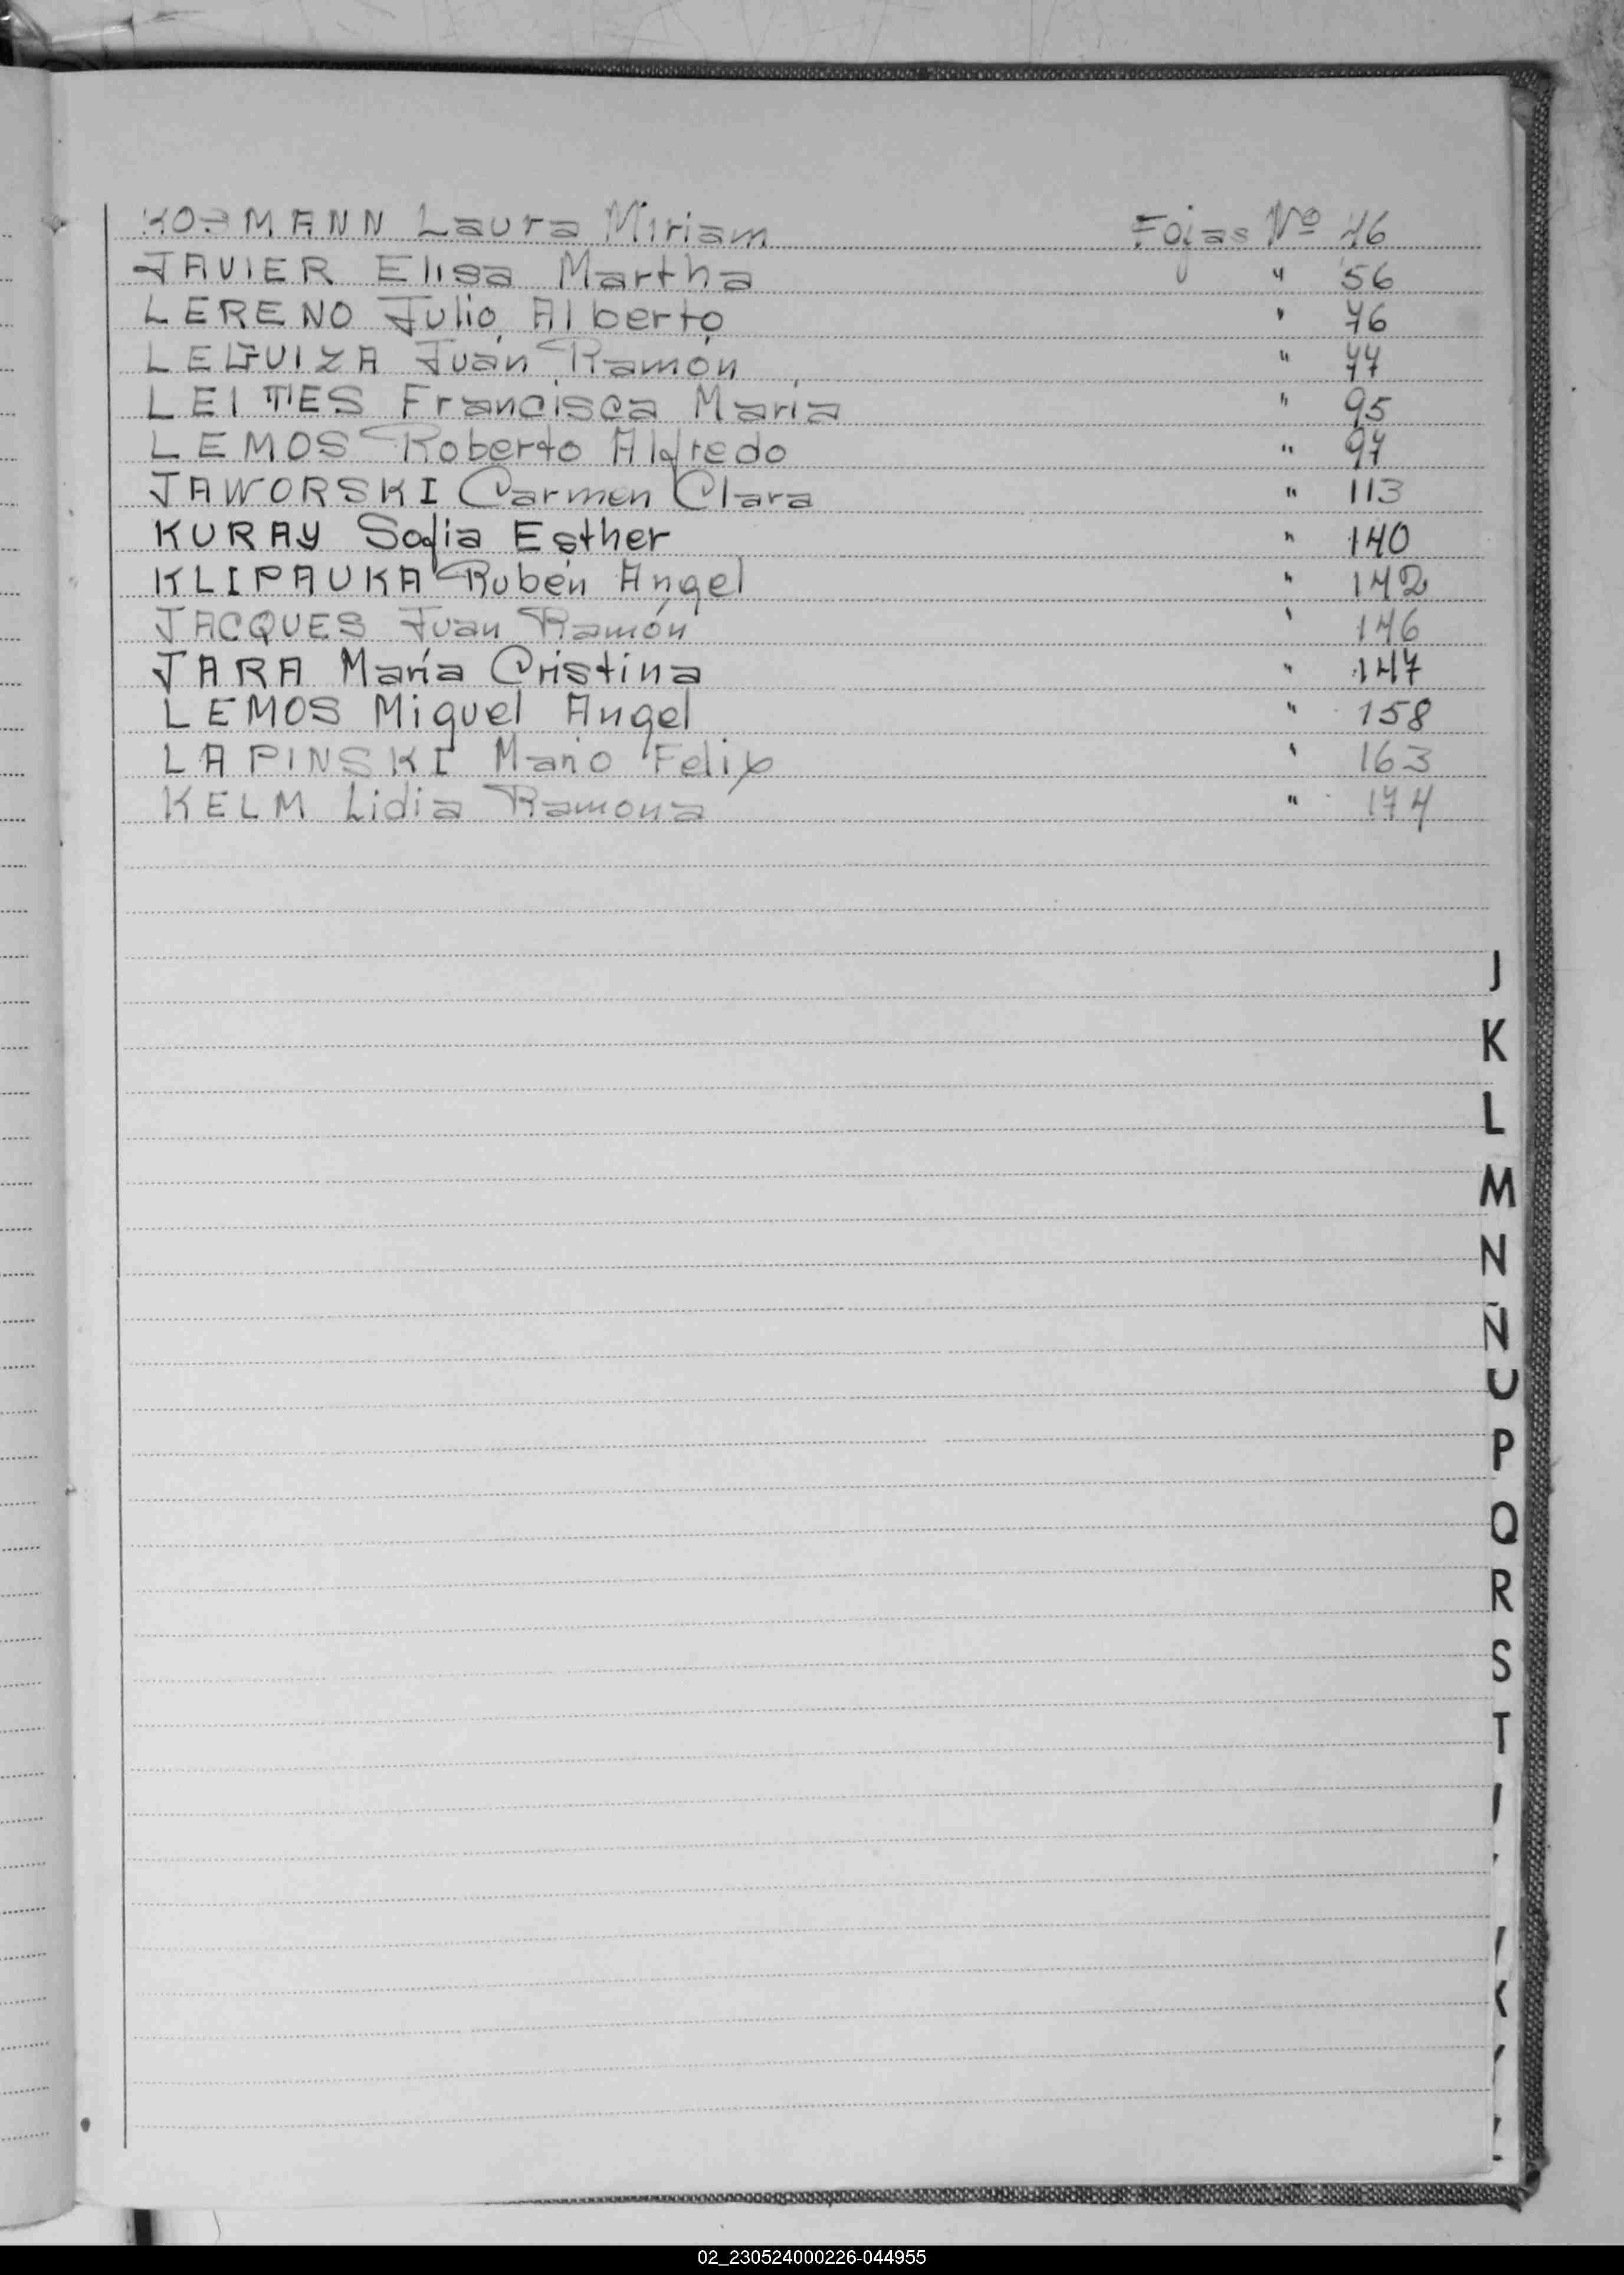 Laura Miriam Fojas Nº 46
JAVIER Elisa Martha " 56
LERENO Julio Alberto " 76
LEGUIZA Juan Ramón " 77
LEITES Francisca María " 95
LEMOS Roberto Alfredo " 97
JAWORSKI Carmen Clara " 113
KURAY Sofia Esther " 140
KLIPAUKA Rubén Angel " 142
JACQUES Juan Ramón " 146
JARA María Cristina " 147
LEMOS Miguel Angel " 158
LAPINSKI Mario Felix " 163
KELM Lidia Ramona " 174
J
K
L
M
N
Ñ
P
Q
R
S
T
02_230524000226-044955